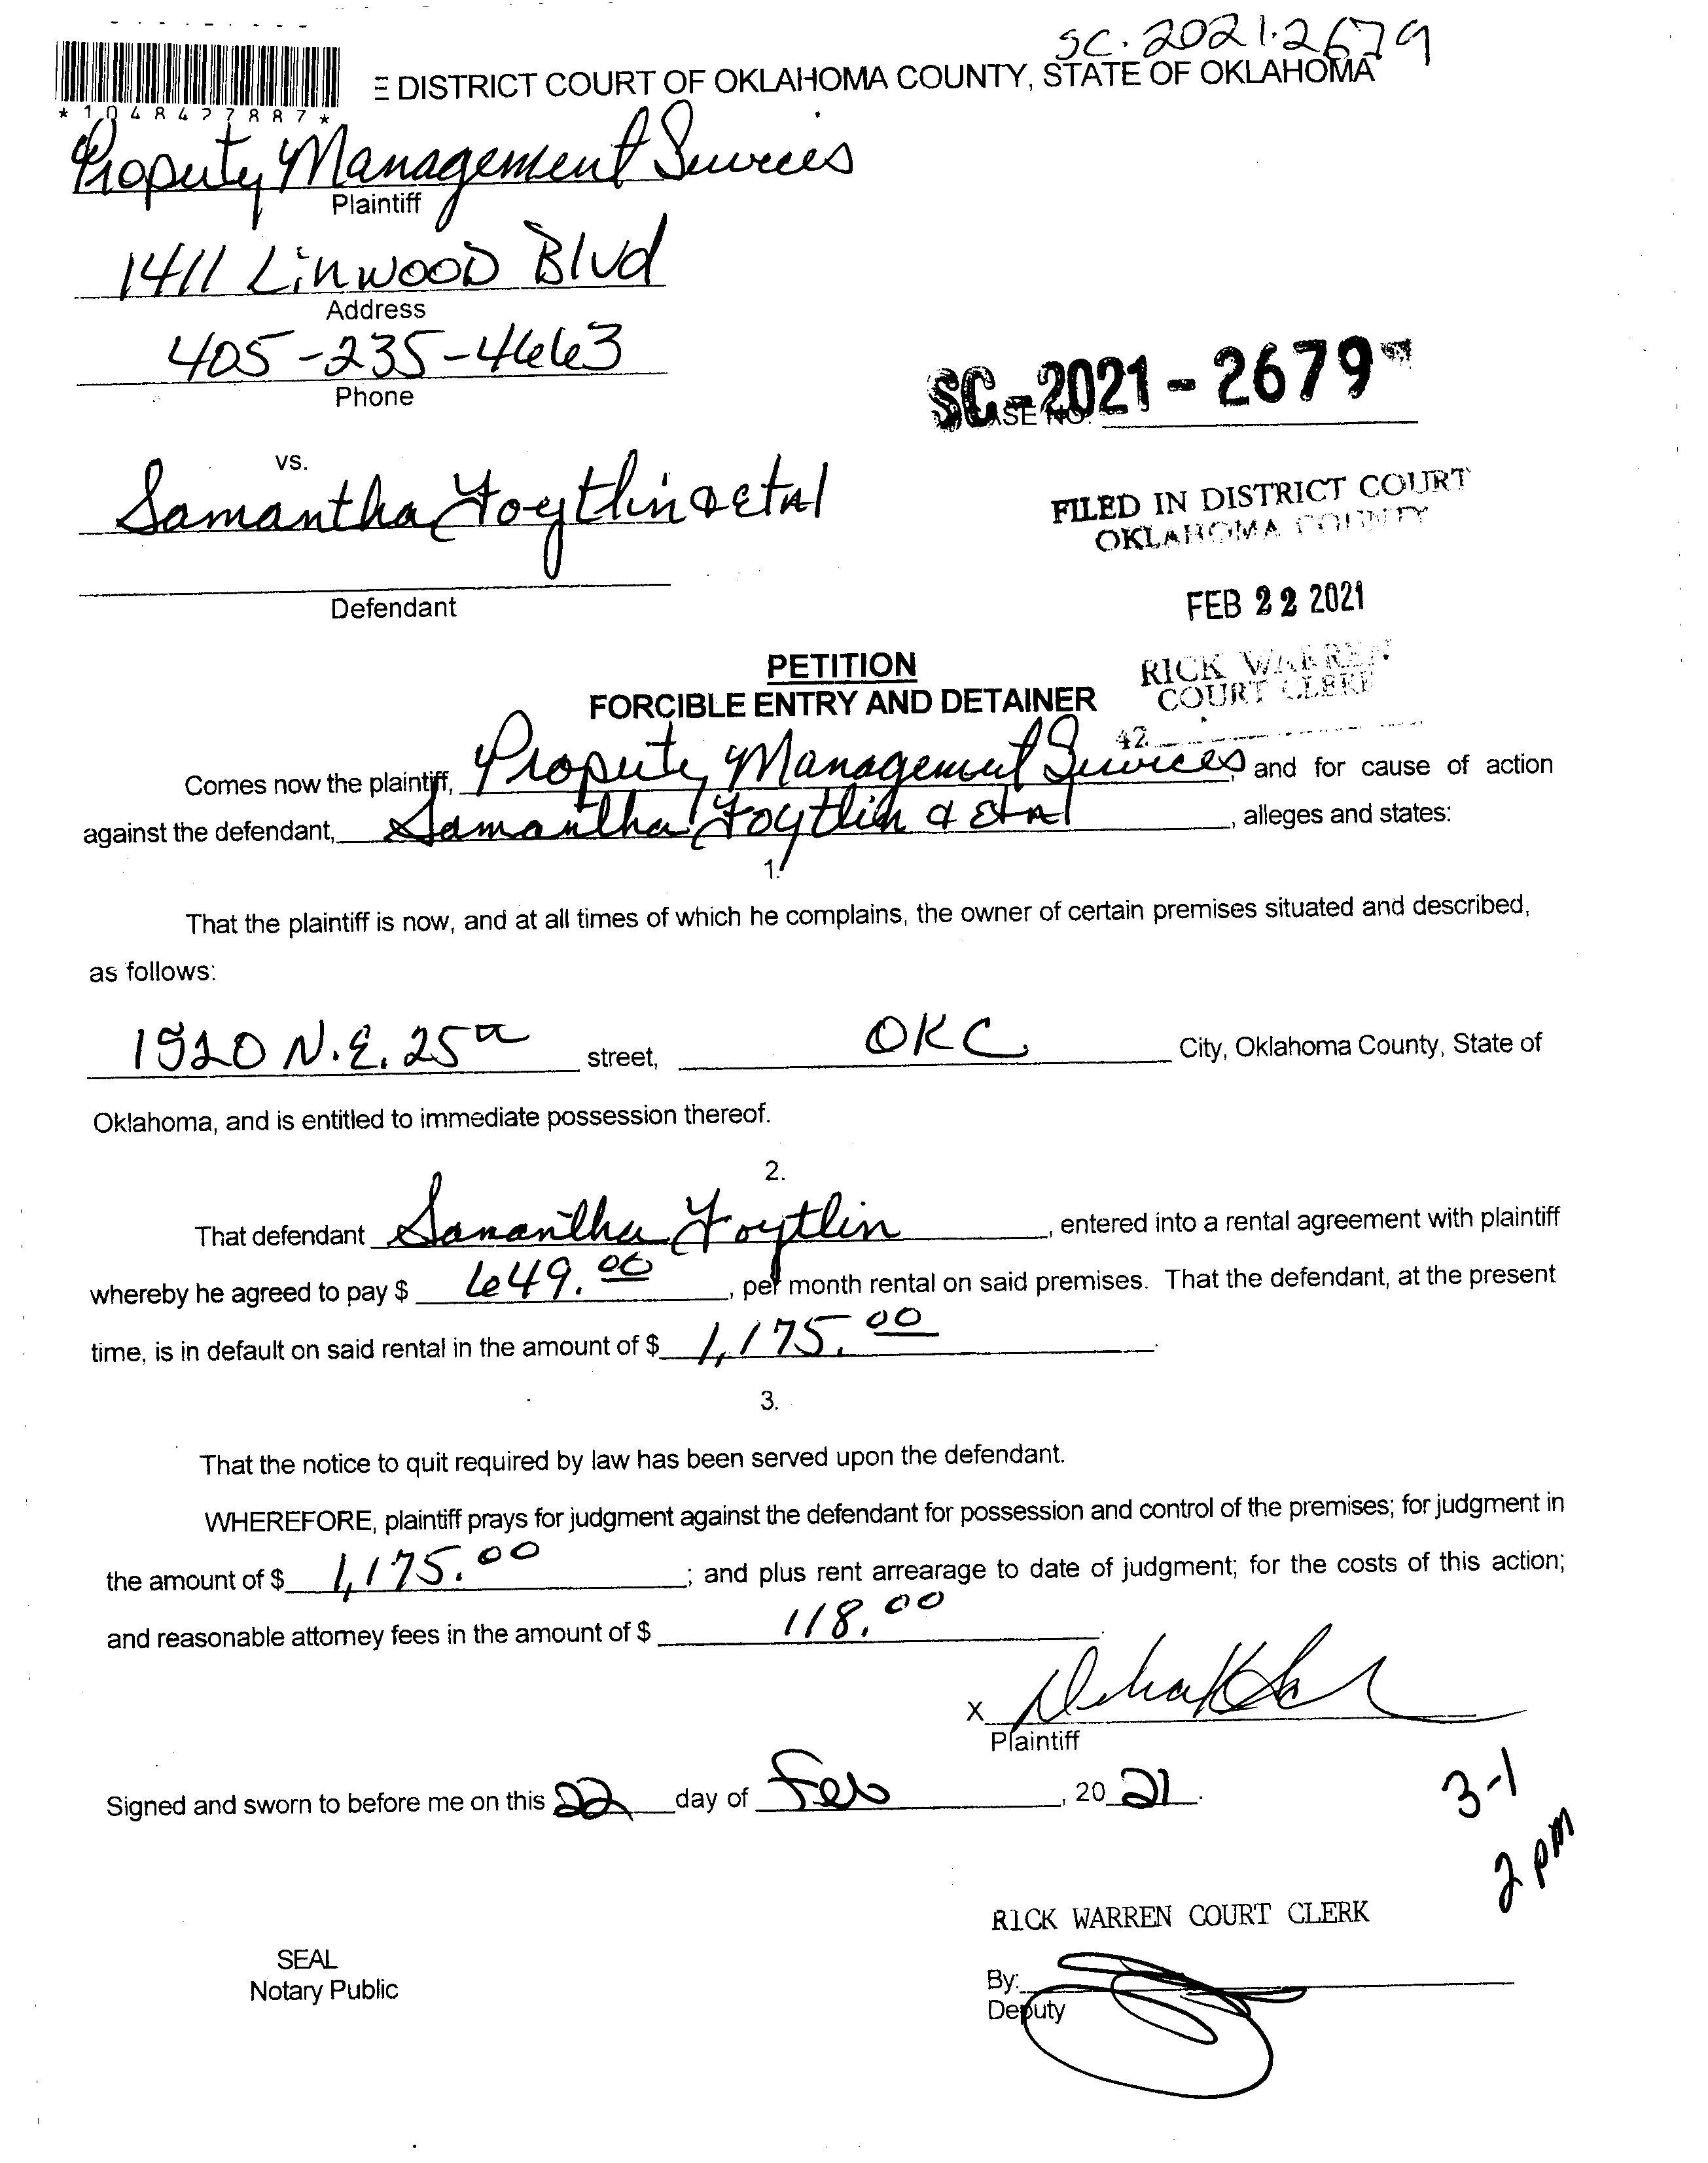 SC.2021.2679
E DISTRICT COURT OF OKLAHOMA COUNTY, STATE OF OKLAHOMA
*1048427887*
Property Management Services
Plaintiff
1411 Linwood Blvd
Address
405-235-4663
Phone
SC-2021-2679
ASE NO.
vs.
Samantha Foytlin & etal
FILED IN DISTRICT COURT
OKLAHOMA COUNTY
Defendant
FEB 22 2021
PETITION
RICK WARREN
COURT CLERK
FORCIBLE ENTRY AND DETAINER
42
Comes now the plaintiff, Property Management Services, and for cause of action
against the defendant, Samantha Foytlin & Etal, alleges and states:
1.
That the plaintiff is now, and at all times of which he complains, the owner of certain premises situated and described,
as follows:
1920 N.E. 25th street, OKC City, Oklahoma County, State of
Oklahoma, and is entitled to immediate possession thereof.
2.
That defendant Samantha Foytlin, entered into a rental agreement with plaintiff
whereby he agreed to pay $ 649.00, per month rental on said premises. That the defendant, at the present
time, is in default on said rental in the amount of $ 1,175.00.
3.
That the notice to quit required by law has been served upon the defendant.
WHEREFORE, plaintiff prays for judgment against the defendant for possession and control of the premises; for judgment in
the amount of $ 1,175.00; and plus rent arrearage to date of judgment; for the costs of this action;
and reasonable attorney fees in the amount of $ 118.00.
X
Plaintiff
Signed and sworn to before me on this 22 day of Feb, 20 21.
3-1
2 pm
RICK WARREN COURT CLERK
SEAL
Notary Public
By:
Deputy